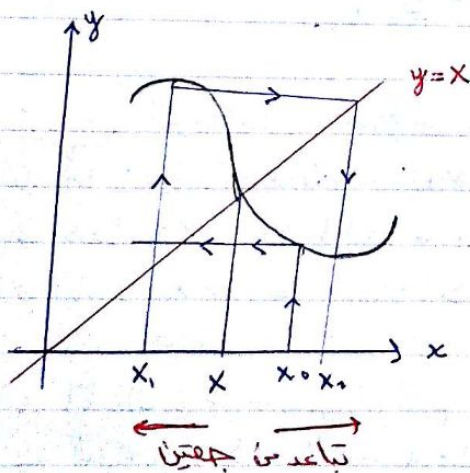 y
y = x
x
x₁ x x₀ x₂
تباعد من جهتين